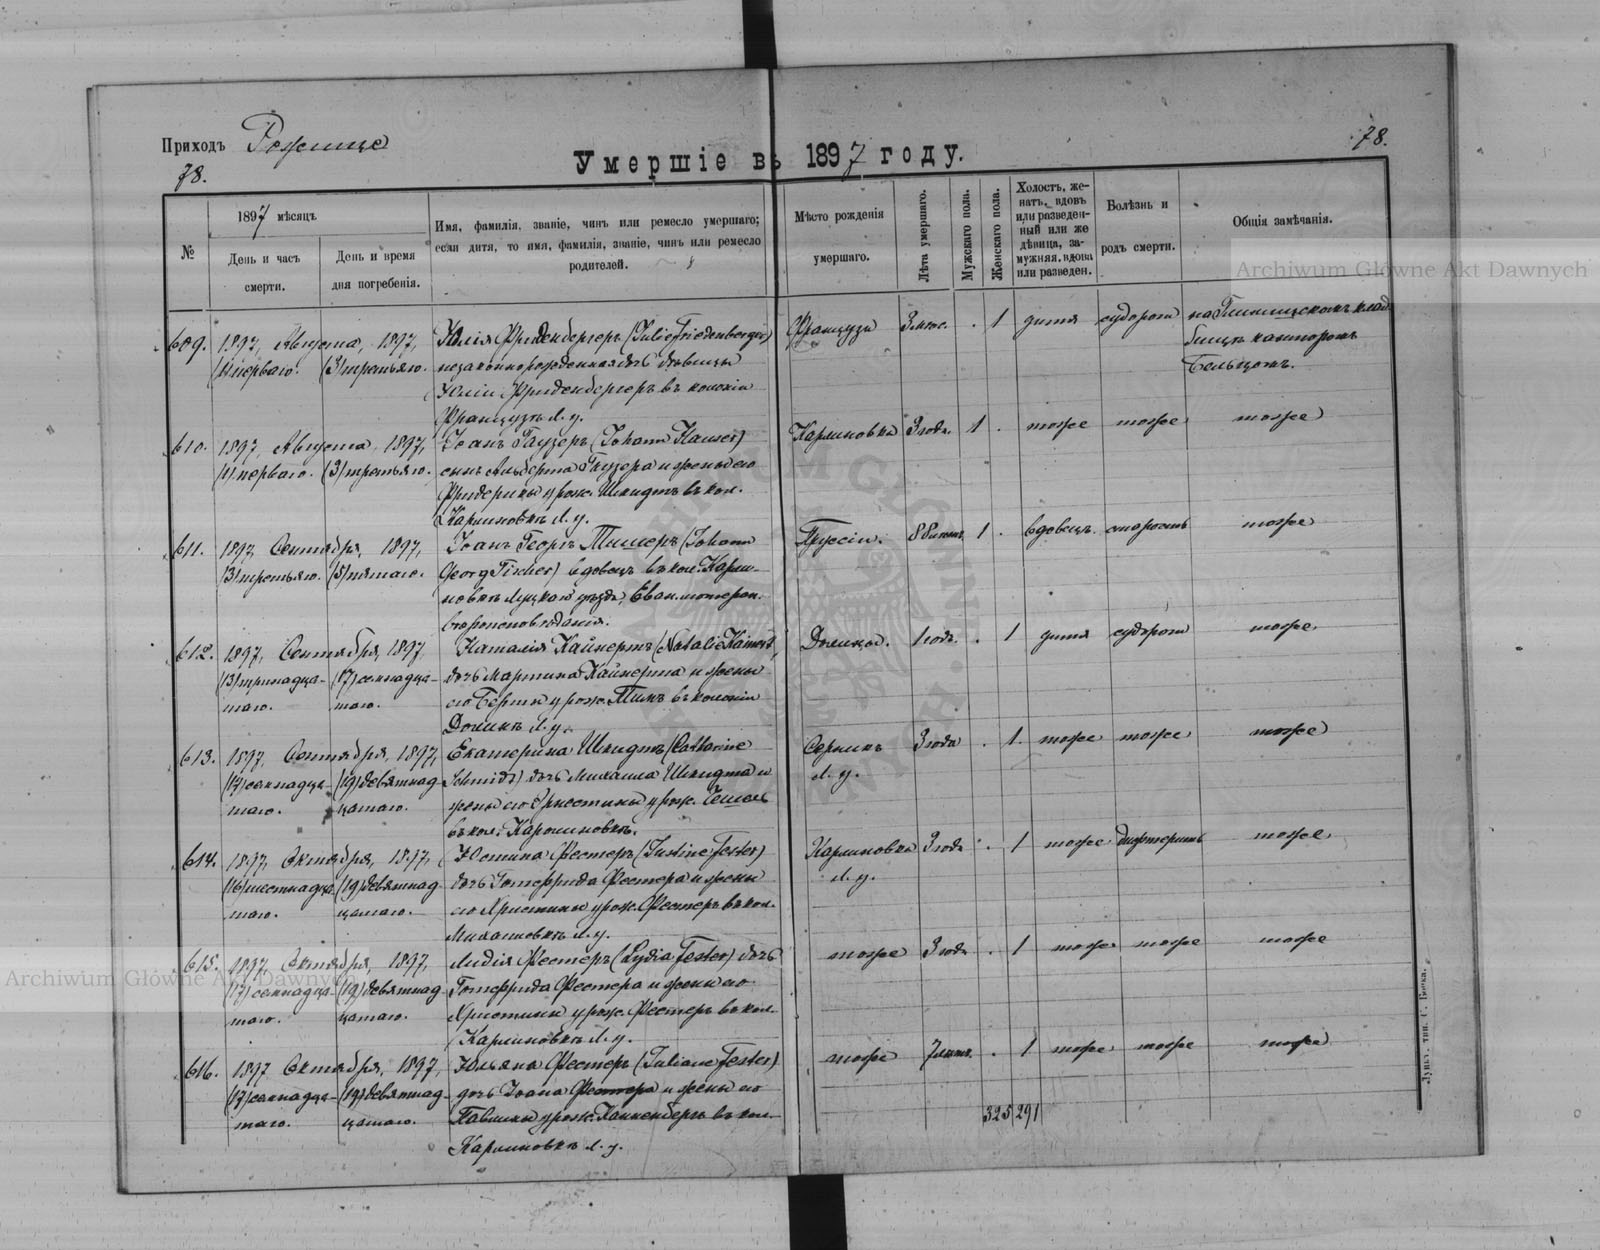 Приходъ Рожище
78.
78.
Умершіе въ 1897 году.
№
1897 мѣсяцъ
День и часъ
смерти.
День и время
дня погребенія.
Имя, фамилія, званіе, чинъ или ремесло умершаго;
если дитя, то имя, фамилія, званіе, чинъ или ремесло
родителей.
Мѣсто рожденія
умершаго.
Лѣта умершаго.
Мужскаго пола.
Женскаго пола.
Холостъ, же-
натъ, вдовъ
или разведен-
ный или же
дѣвица, за-
мужняя, вдова
или разведен.
Болѣзнь и
родъ смерти.
Общія замѣчанія.
Archiwum Główne Akt Dawnych
609. 1897, Августа, 1897, Юлія Фриденбергеръ (Julie Friedenberger) Французы 3 мѣс. . 1 дитя судороги на кладб
(1) перваго. (3) третьяго. незаконнорожденная дочь дѣвицы
бищѣ канторомъ
Юліи Фриденбергеръ въ колоніи
Бельцомъ.
Французъ Л. у.
610. 1897, Августа, 1897, Іоанъ Гаузеръ (Johann Hauser) Карлиновка 3 года. 1 . тоже тоже тоже
(1) перваго. (3) третьяго. сынъ Альберта Гаузера и жены его
Фридерики урож. Шмидтъ въ кол.
Карлиновкѣ Л. у.
611. 1897, Сентября, 1897, Іоанъ Георгъ Тишеръ (Johann Пруссіи. 88 лѣтъ 1 . вдовецъ старость тоже
(3) третьяго. (5) пятаго. Georg Tischer) вдовецъ въ кол. Карли-
новкѣ Луцкаго уѣзда, Еван. лютеран.
вѣроисповѣданія.
612. 1897, Сентября, 1897, Наталія Кайнертъ (Natalie Kainert) 1 годъ. . 1 дитя судороги тоже
(13) тринадца- (17) семнадца- дочь Мартина Кайнерта и жены
таго. таго. его Берты урож. въ колоніи
Л. у.
613. 1897, Сентября, 1897, Екатерина Шмидтъ (Catharine Серникъ 3 года . 1. тоже тоже тоже
(17) семнадца- (19) девятнад- Schmidt) дочь Михаила Шмидта и Л. у.
таго. цатаго. жены его Эрнестины урож.
въ кол. Каролиновкѣ.
614. 1897, Октября, 1897, Юстина Фестеръ (Justine Fester) Карлиновка 3 года . 1 тоже дифтеритъ тоже
(16) шестнадца (19) девятнад- дочь Готфрида Фестера и жены Л. у.
таго. цатаго. его Христины урож. Фестеръ въ кол.
Л. у.
615. 1897, Октября, 1897, Лидія Фестеръ (Lydia Fester) дочь тоже 3 года . 1 тоже тоже тоже
(17) семнадца- (19) девятнад Готфрида Фестера и жены его
таго. цатаго. Христины урож. Фестеръ въ кол.
Карлиновкѣ Л. у.
616. 1897 Октября, 1897, Юльяна Фестеръ (Juliane Fester) тоже 7 лѣтъ. . 1 тоже тоже тоже
(17) семнадца- (19) девятнад- дочь Іоана Фестера и жены его
таго. цатаго. Павлины урож. въ кол.
Карлиновкѣ Л. у.
325 291
Archiwum Główne Akt Dawnych